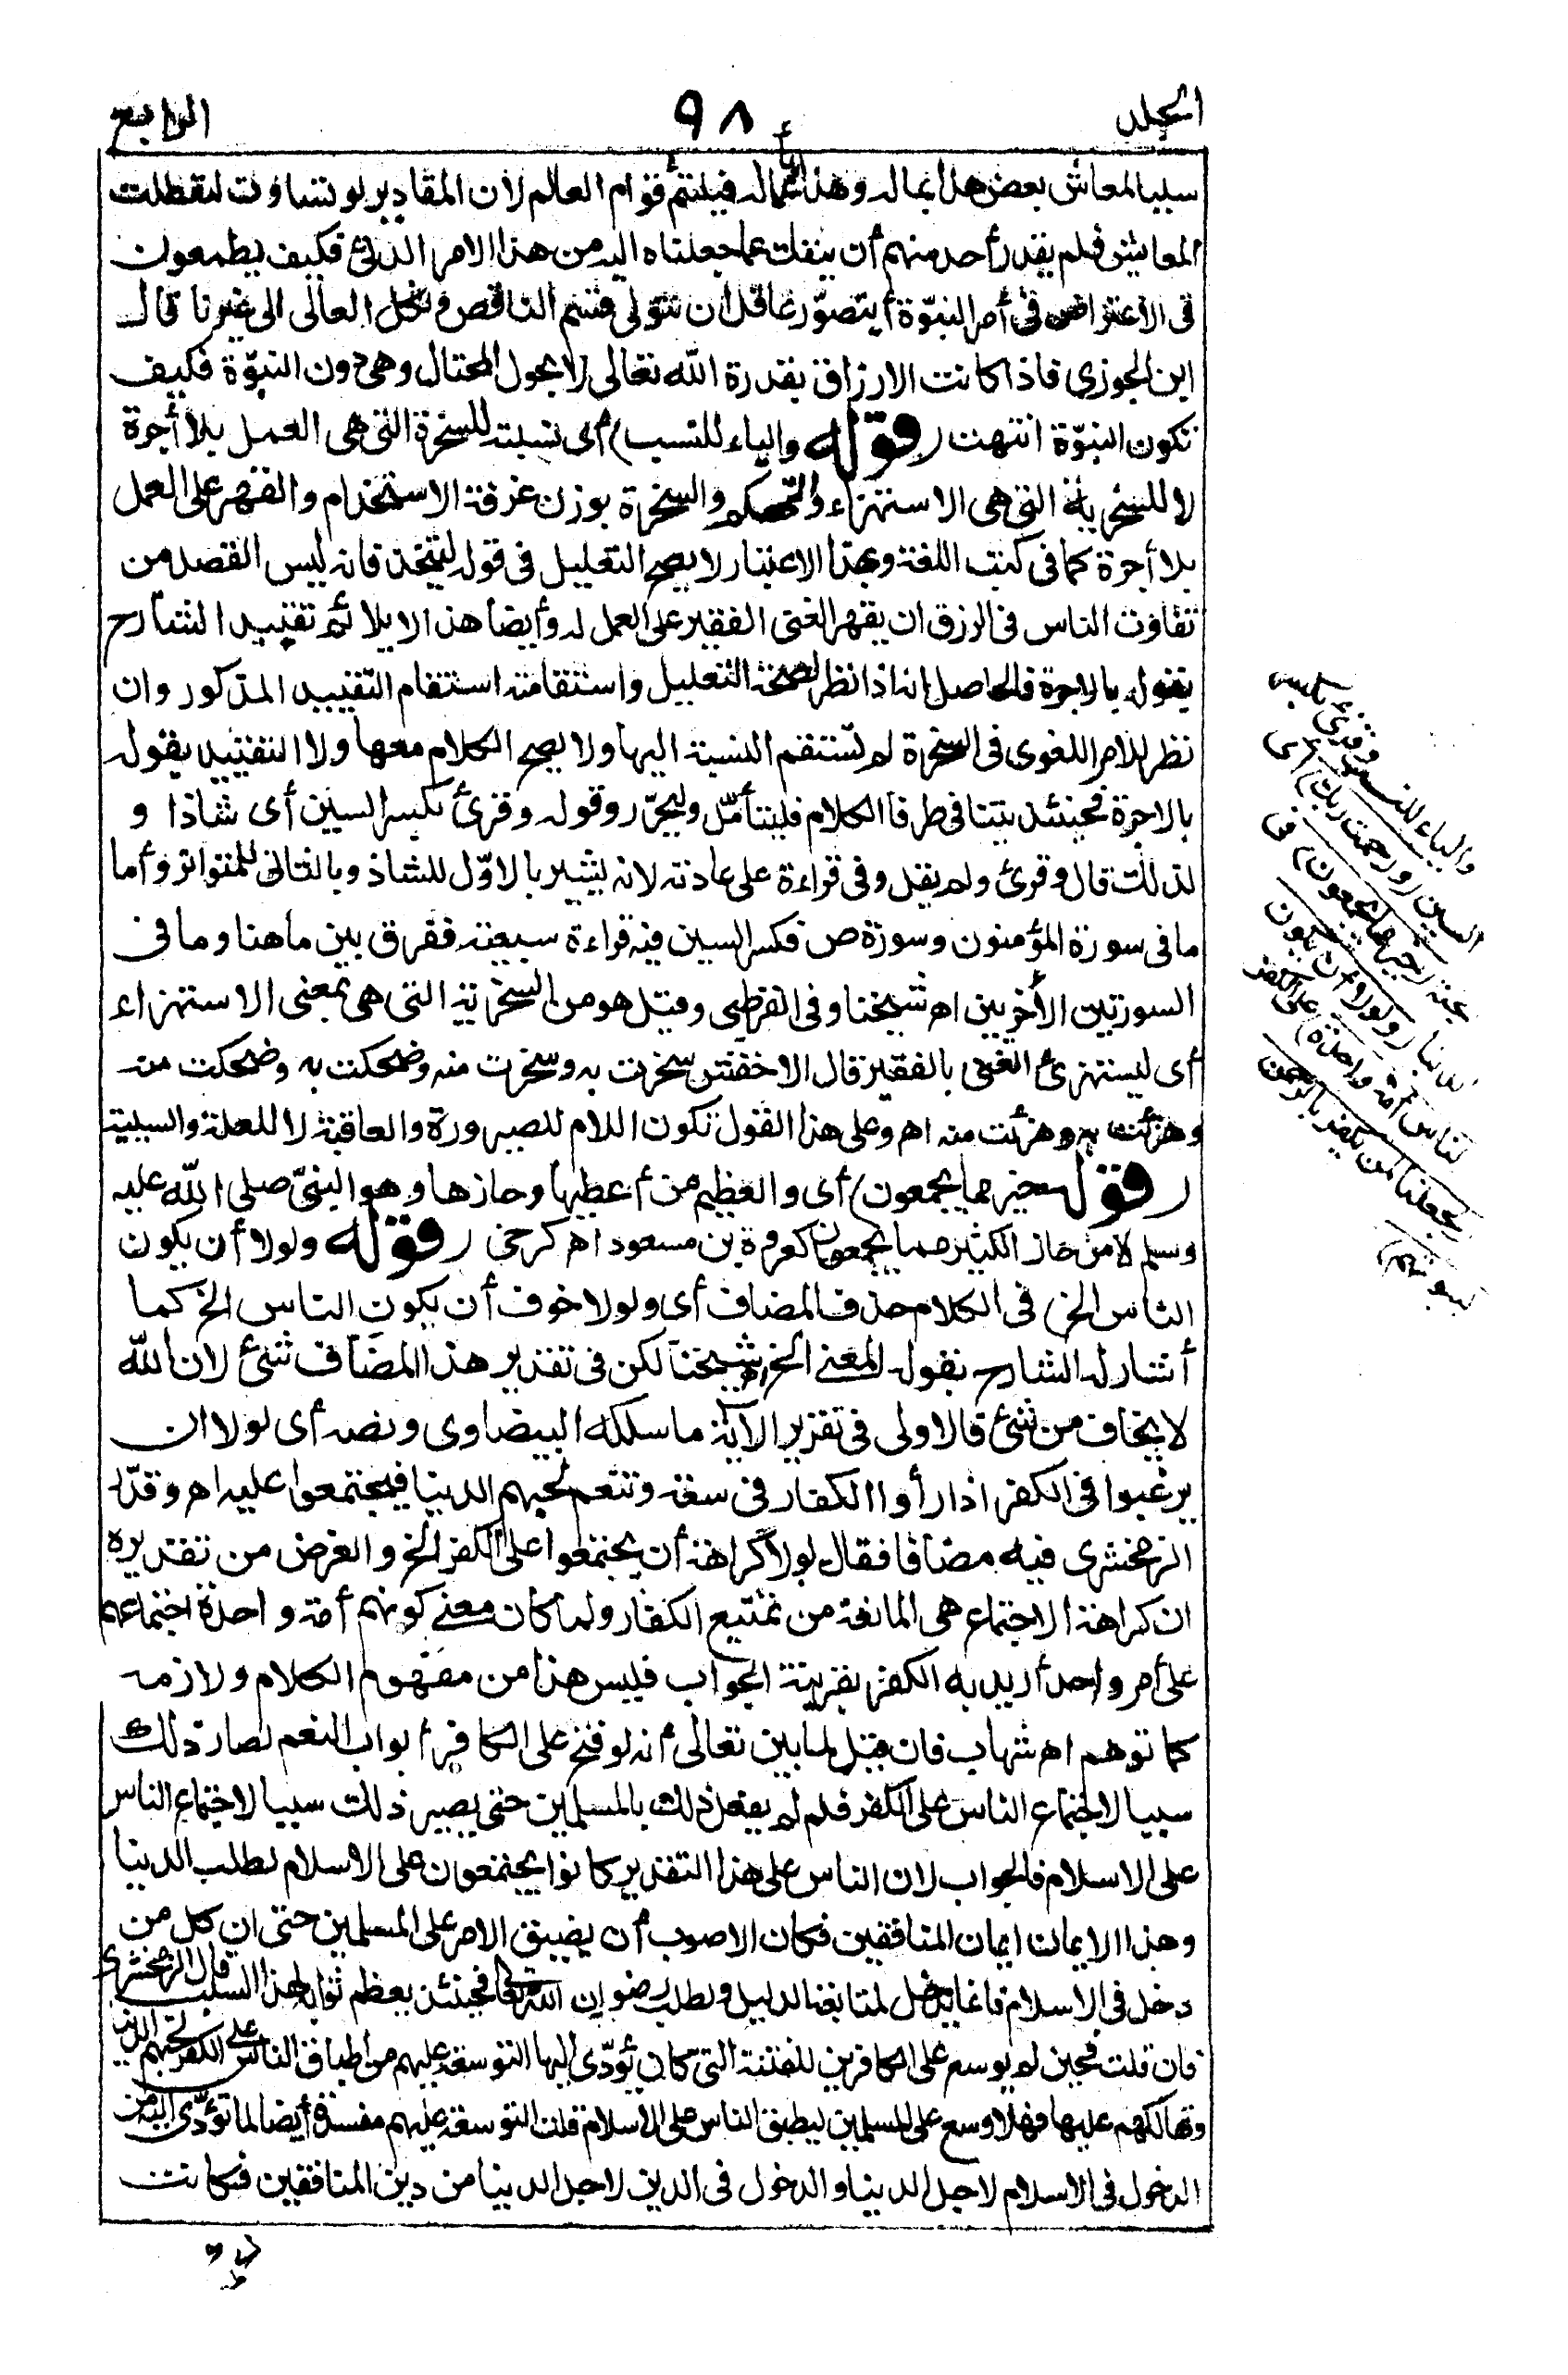 الجلد ٩٨ الرابع
سببا لمعاش بعض هذا بماله وهذا بأعماله فيلتئم قوام العالم لان المقادير لو تساوت لتعطلت
المعايش فلم يقدر أحد منهم أن ينفلت عما جعلناه اليه من هذا الامر الدنئ فكيف يطمعون
فى الاعتراض فى أمر النبوّة أيتصوّر عاقل ان نتولى قسم الناقص ونكل العالى الى غيرنا قال
ابن الجوزى فاذا كانت الارزاق بقدرة الله تعالى لا بحول المحتال وهى دون النبوّة فكيف
تكون النبوّة انتهت (قوله والياء للنسب) أى نسبته للسخرة التى هى العمل بلا أجرة
لا للسخرية التى هى الاستهزاء والتهكم والسخرة بوزن غرفة الاستخدام والقهر على العمل
بلا أجرة كما فى كتب اللغة وبهذا الاعتبار لا يصح التعليل فى قوله ليتخذ فانه ليس القصد من
تفاوت الناس فى الرزق ان يقهر الغنى الفقير على العمل له وأيضا هذا لا يلائم تقييد الشارح
بقوله بالاجرة فالحاصل انه اذا نظر لصحة التعليل واستقامته استقام التقييد المذكور وان
نظر للامر اللغوى فى السخرة لم تستقم النسبة اليها ولا يصح الكلام معها ولا التقييد بقوله
بالاجرة فحينئذ يتنافى طرفا الكلام فليتأمّل وليحرّر وقوله وقرئ بكسر السين أى شاذا و
لذلك قال وقرئ ولم يقل وفى قراءة على عادته لانه يشير بالاوّل للشاذ وبالثانى للمتواتر وأما
ما فى سورة المؤمنون وسورة ص فكسر السين فيه قراءة سبعية ففرق بين ما هنا وما فى
السورتين الأخريين اهـ شيخنا وفى القرطبى وقيل هو من السخرية التى هى بمعنى الاستهزاء
أى ليستهزئ الغنى بالفقير قال الاخفش سخرت به وسخرت منه وضحكت به وضحكت منه
وهزئت به وهزئت منه اهـ وعلى هذا القول تكون اللام للصيرورة والعاقبة لا للعلة والسببية
(قوله خير مما يجمعون) أى والعظيم من أعطيها وحازها وهو النبىّ صلى الله عليه
وسلم لا من حاز الكثير مما يجمعون كعروة بن مسعود اهـ كرخى (قوله ولولا أن يكون
الناس الخ) فى الكلام حذف المضاف أى ولولا خوف أن يكون الناس الخ كما
أشار له الشارح بقوله المعنى الخ اهـ شيخنا لكن فى تقدير هذا المضاف شئ لان الله
لا يخاف من شئ فالاولى فى تقرير الآية ما سلكه البيضاوى ونصه أى لولا ان
يرغبوا فى الكفر اذا رأوا الكفار فى سعة وتنعم لحبهم الدنيا فيجتمعوا عليه اهـ وقدّر
الزمخشرى فيه مضافا فقال لولا كراهة أن يجتمعوا على الكفر الخ والغرض من تقديره
ان كراهة الاجتماع هى المانعة من تمتيع الكفار ولما كان معنى كونهم أمة واحدة اجتماعهم
على أمر واحد أريد به الكفر بقرينة الجواب فليس هذا من مفهوم الكلام ولازمه
كما توهم اهـ شهاب فان قيل لما بين تعالى أنه لو فتح على الكافر أبواب النعم لصار ذلك
سببا لاجتماع الناس على الكفر فلم لم يفعل ذلك بالمسلمين حتى يصير ذلك سببا لاجتماع الناس
على الاسلام فالجواب لان الناس على هذا التقدير كانوا يجتمعون على الاسلام لطلب الدنيا
وهذا الايمان ايمان المنافقين فكان الاصوب أن يضيق الامر على المسلمين حتى ان كل من
دخل فى الاسلام فانما يدخل لمتابعة الدليل ولطلب رضوان الله تعالى فحينئذ يعظم ثوابه لهذا السبب قال الزمخشرى
فان قلت فحين لم يوسع على الكافرين للفتنة التى كان يؤدّى اليها التوسعة عليهم من اطباق الناس على الكفر لحبهم الدنيا
وتهالكهم عليها فهلا وسع على المسلمين ليطبق الناس على الاسلام قلت التوسعة عليهم مفسدة أيضا لما تؤدّى اليه من
الدخول فى الاسلام لاجل الدنيا والدخول فى الدين لاجل الدنيا من دين المنافقين فكانت
والياء للنسب وقرئ بكسر
السين (ورحمت ربك) أى
الجنة (خير مما يجمعون) فى
الدنيا (ولولا أن يكون
الناس أمة واحدة) على الكفر
(لجعلنا لمن يكفر بالرحمن
لبيوتهم)